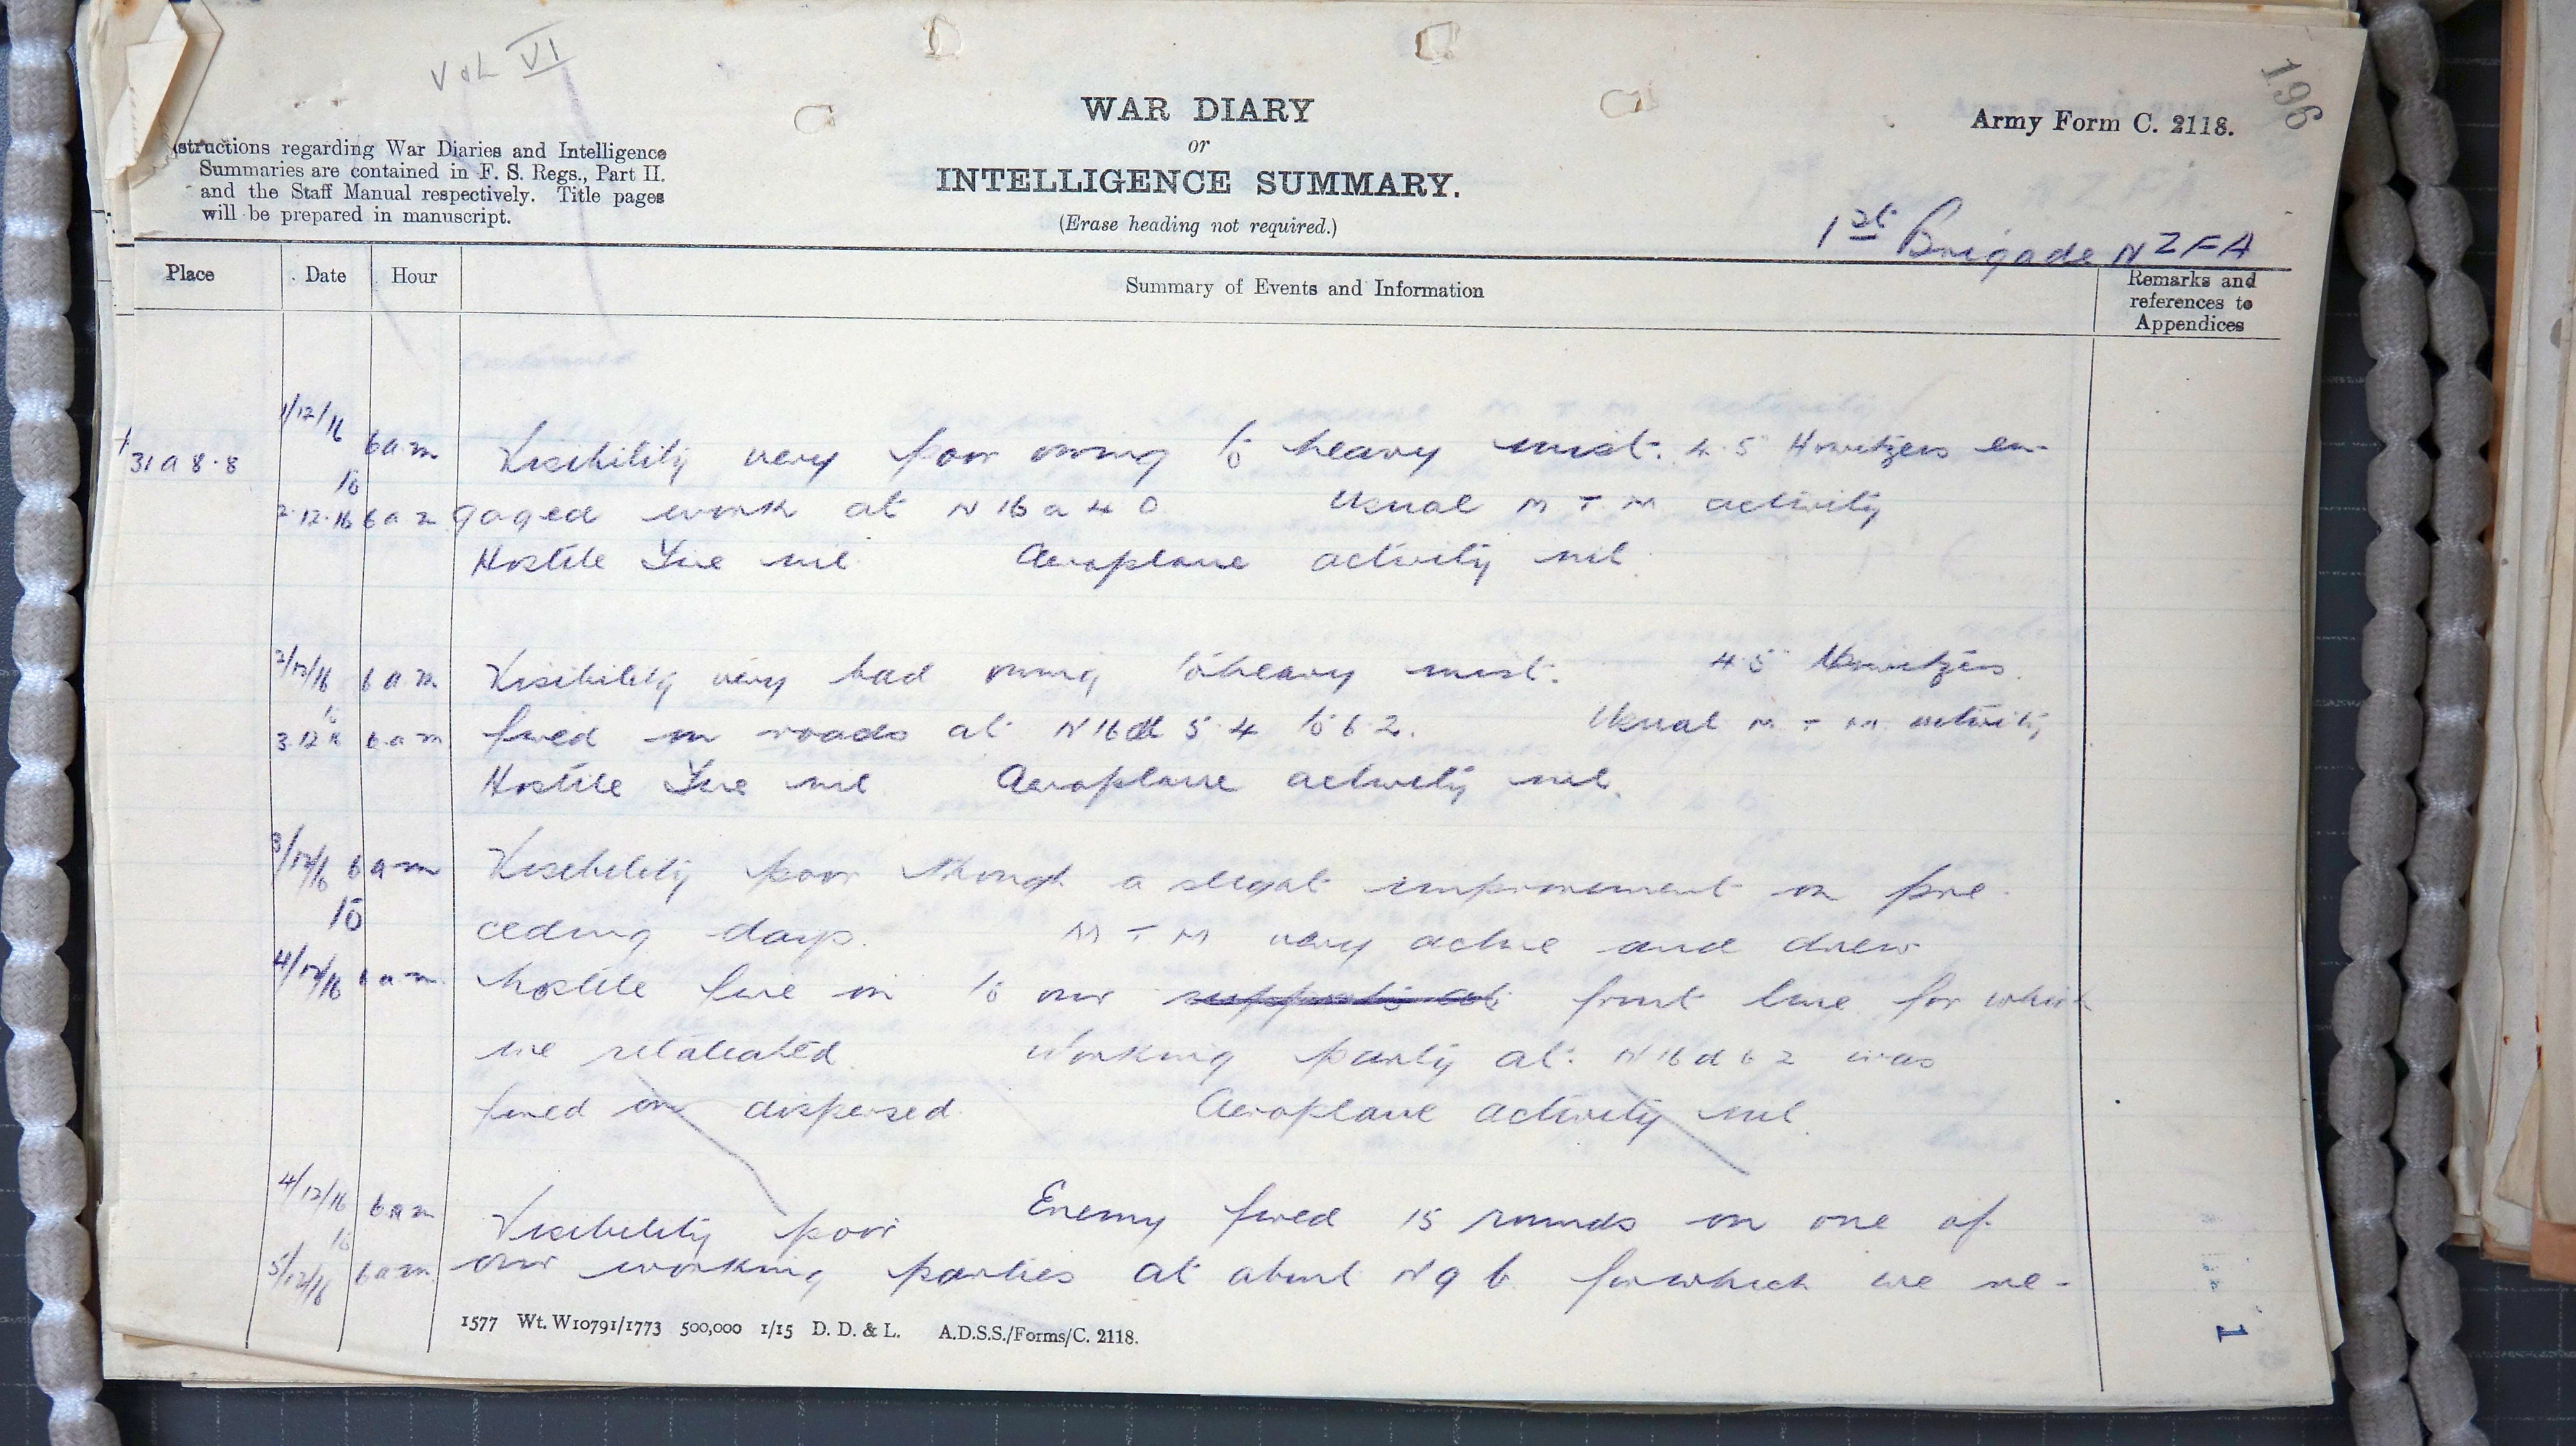 Vol VI
196
WAR DIARY
or
INTELLIGENCE SUMMARY.
(Erase heading not required.)
Army Form C. 2118.
structions regarding War Diaries and Intelligence
Summaries are contained in F. S. Regs., Part II.
and the Staff Manual respectively. Title pages
will be prepared in manuscript.
1st Brigade NZFA
Place Date Hour Summary of Events and Information Remarks and
references to
Appendices
1/12/16
31 a 8.8 6 a m Visibility very poor owing to heavy mist. 4.5" Howitzers en-
to
2.12.16 6 a m gaged work at N 16 a 4 0 Usual M T M activity
Hostile Fire nil Aeroplane activity nil.
2/12/16 6 a m Visibility very bad owing to heavy mist. 4.5" Howitzers
to
3.12.16 6 a m fired on roads at N 16 d 5.4 to 6.2. Usual M T M activity
Hostile Fire nil Aeroplane activity nil.
3/12/16 6 a m Visibility poor though a slight improvement on pre-
to ceding days. M T M very active and drew
4/12/16 6 a m. hostile fire on to our front line for which
we retaliated. Working party at N 16 d 6 2 was
fired on dispersed. Aeroplane activity nil.
4/12/16 6 a m Visibility poor Enemy fired 15 rounds on one of
to
5/12/16 6 a m our working parties at about N 9 b for which we re-
1577 Wt. W10791/1773 500,000 1/15 D. D. & L. A.D.S.S./Forms/C. 2118.
1